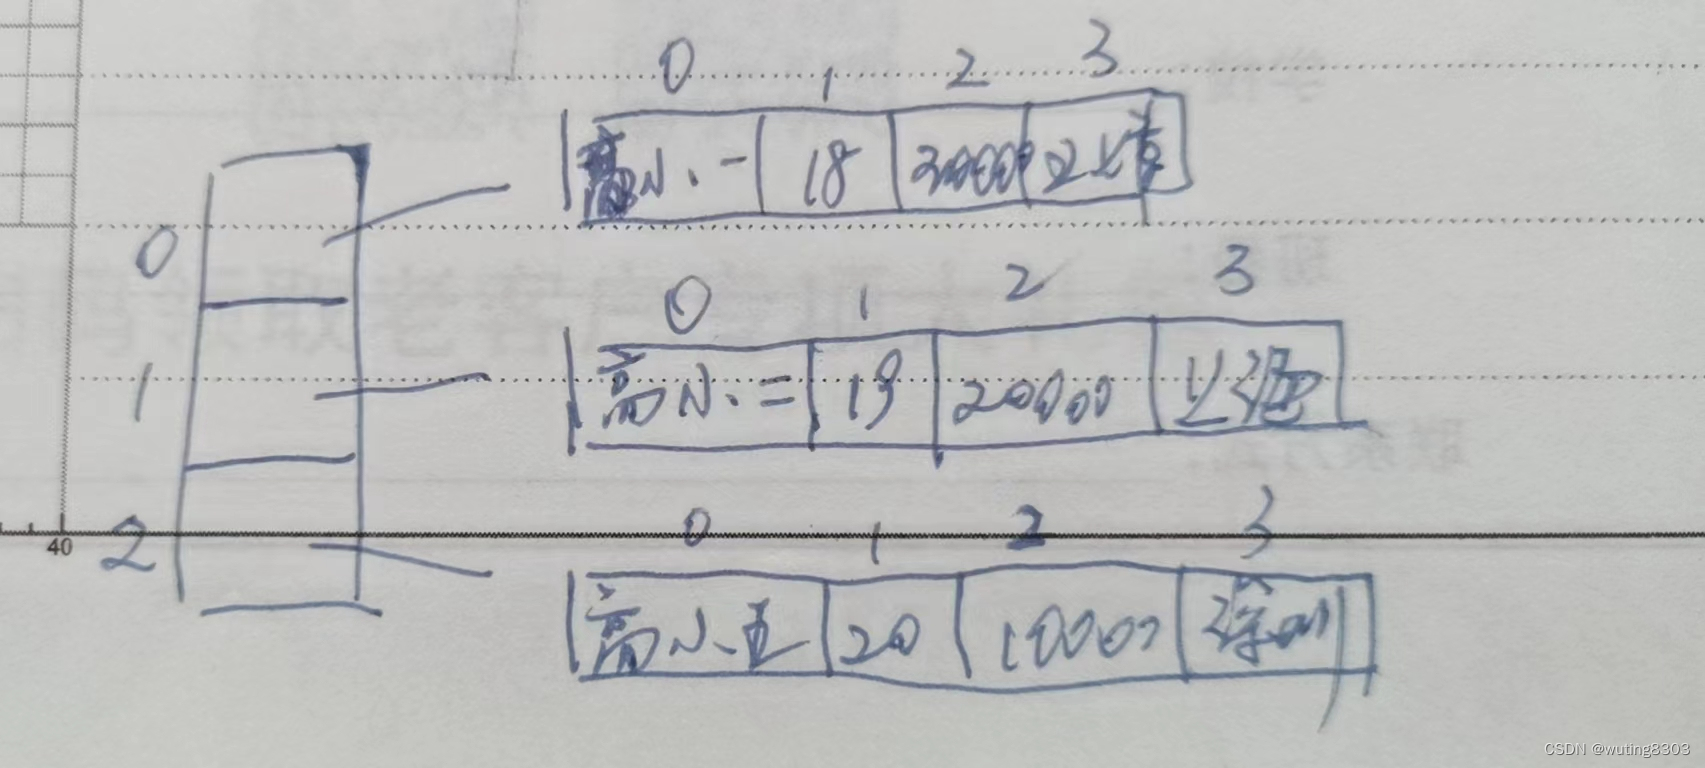 0 1 2 3
0 高小一 18 30000 北京
1 0 1 2 3
高小二 19 20000 上海
2 0 1 2 3
高小五 20 10000 深圳
40
CSDN @wuting8303